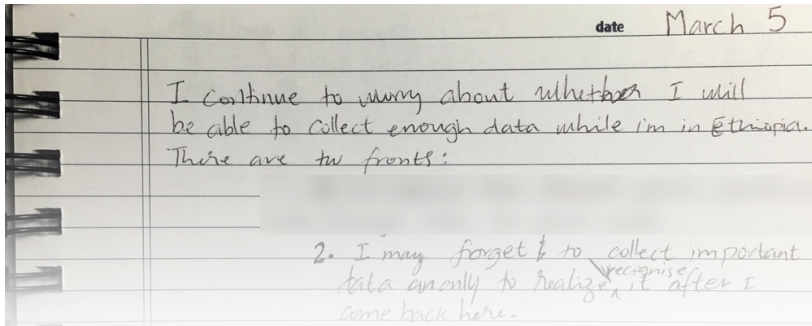 date March 5
I continue to worry about whether I will
be able to collect enough data while i'm in Ethiopia.
There are two fronts:
2. I may forget to collect important
data only to realize recognise it after I
come back here.